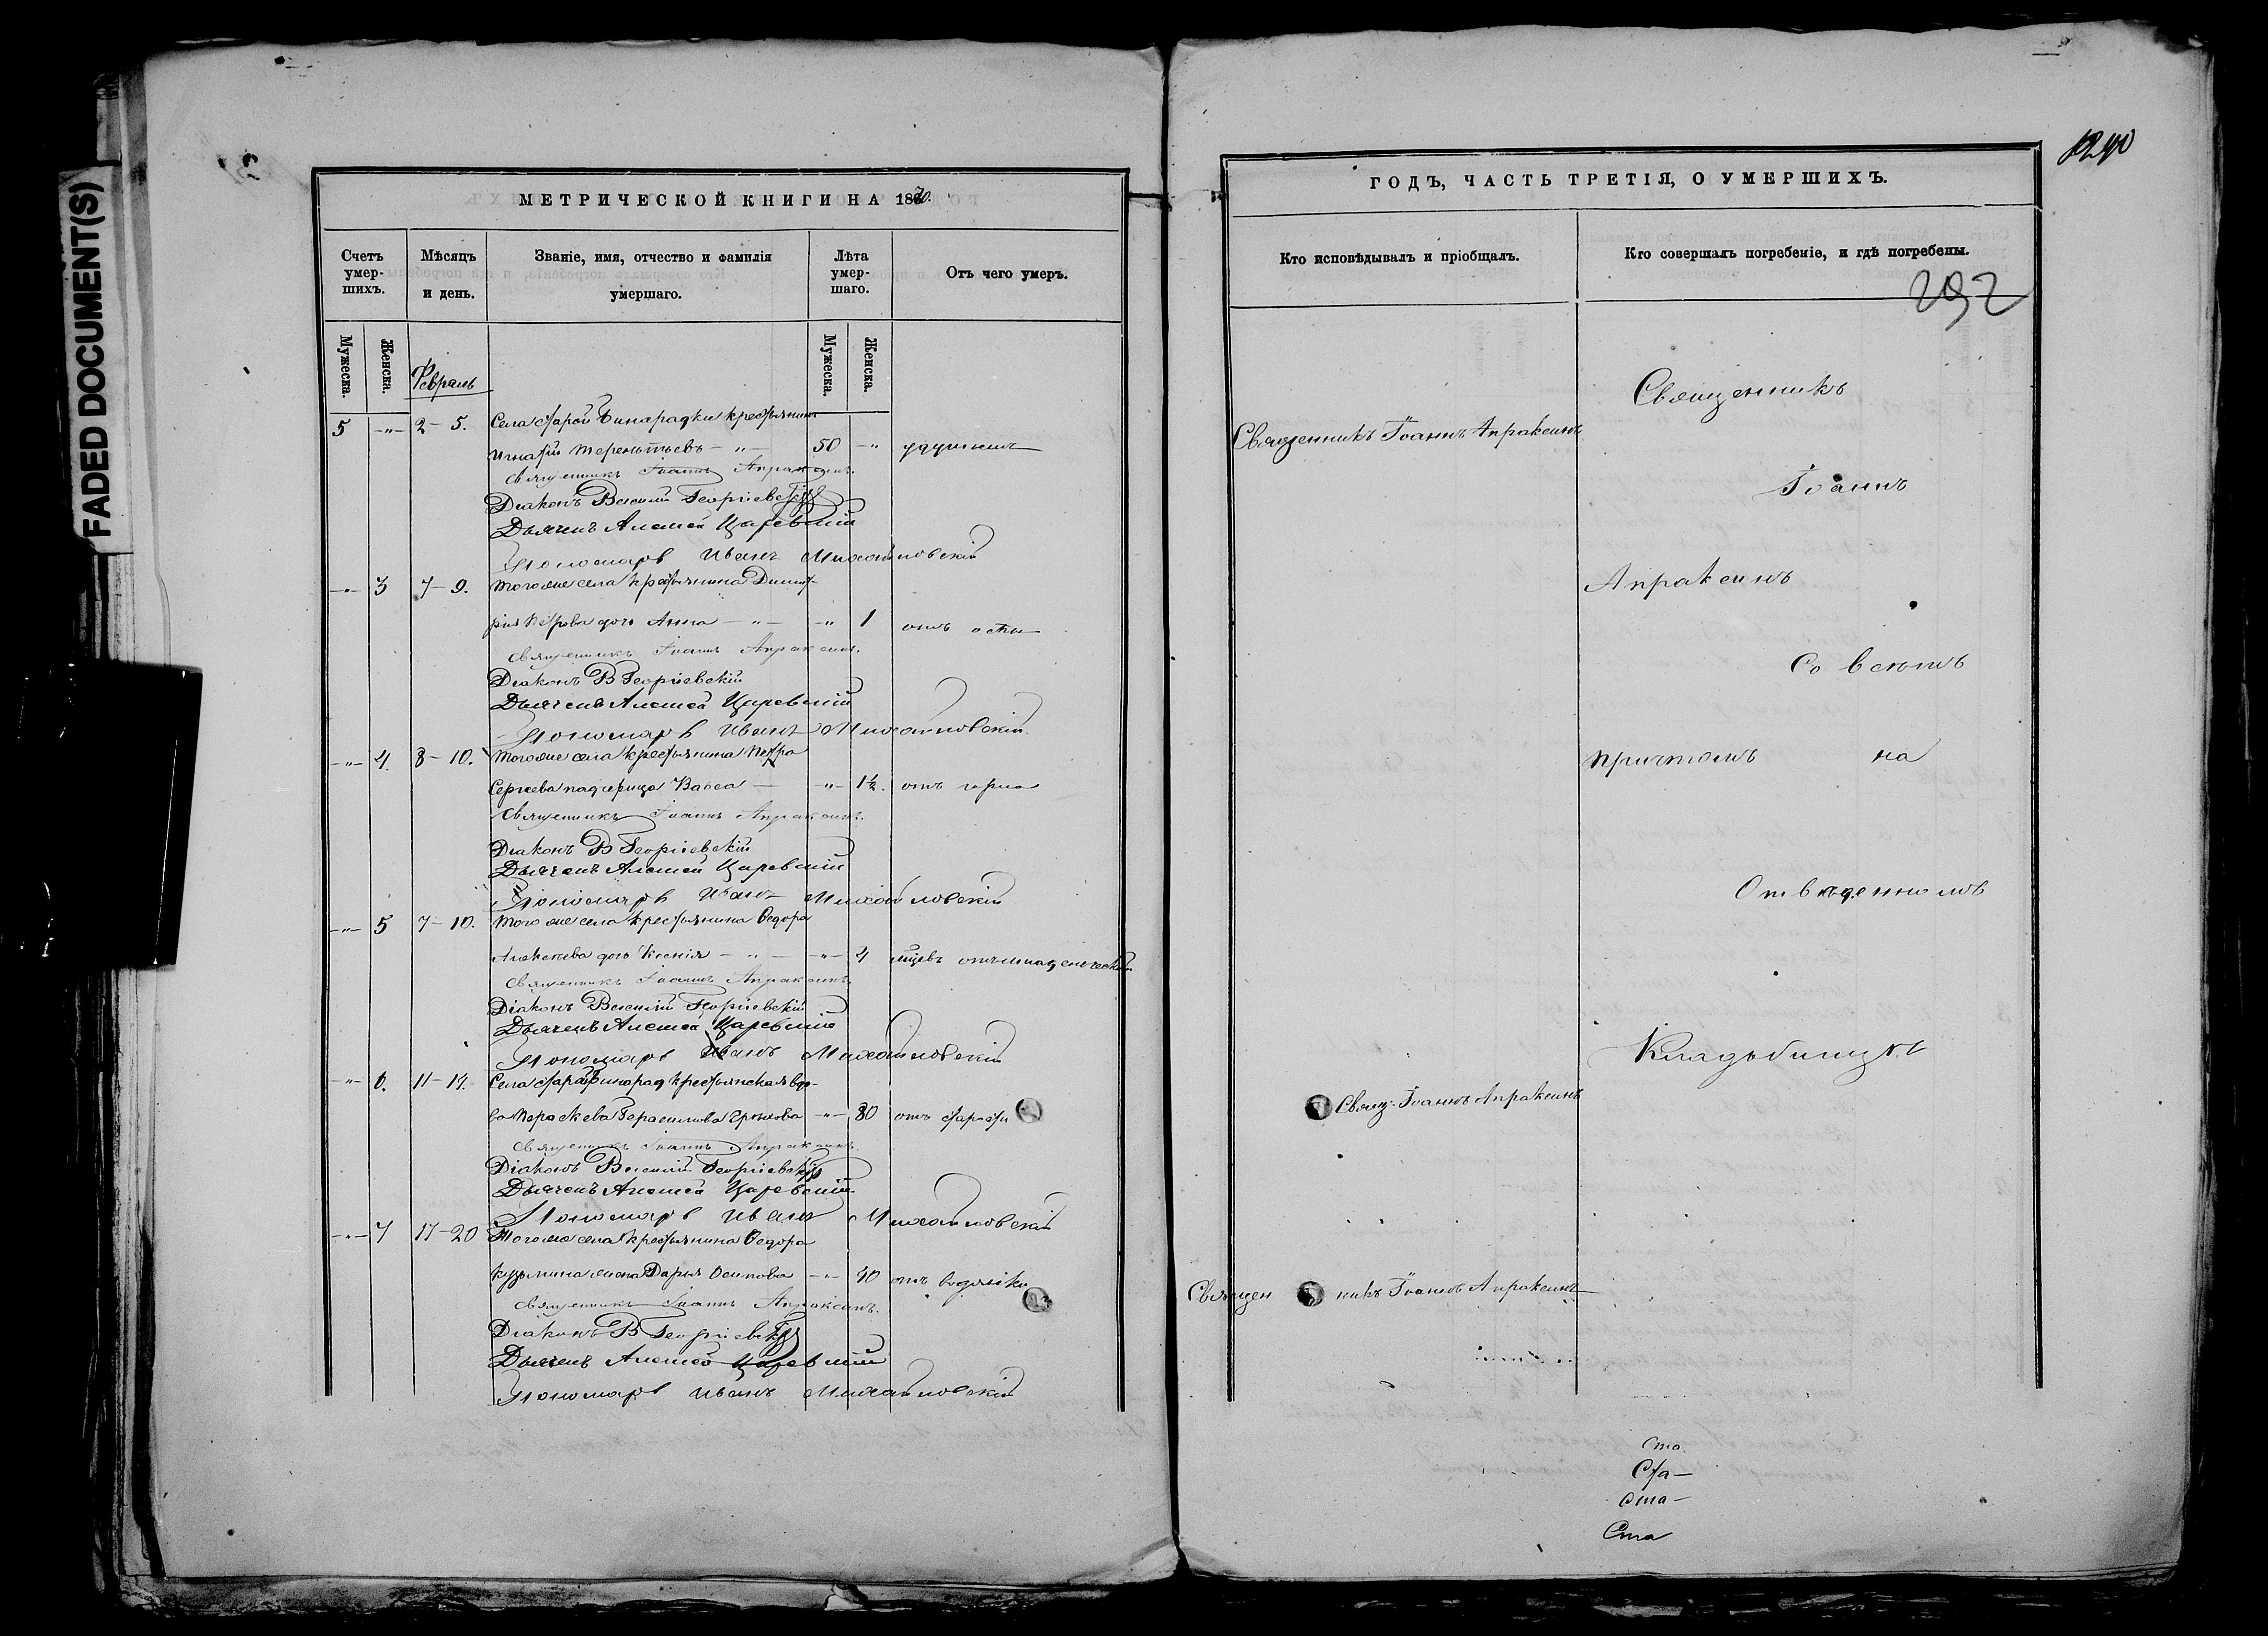 FADED DOCUMENT(S)
МЕТРИЧЕСКОЙ КНИГИ НА 1870.
Счетъ умер- шихъ.
Мѣсяцъ и день.
Званіе, имя, отчество и фамилія умершаго.
Лѣта умер- шаго.
Отъ чего умеръ.
Мужеска.
Женска.
Февраль
Мужеска.
Женска.
5 -"- 2-5. Села старой Бинарадки крестьянинъ
Игнатій Терентьевъ -"- 50 -"
Священникъ Іоаннъ Апраксинъ.
Діаконъ Василій Георгіевскій
Дьячекъ Алексей Царевскій
Пономарь Иванъ Михайловскій
-"- 3 7-9. Тогоже села крестьянина Димит-
рія Петрова дочь Анна -"- -" 1 отъ оспы
Священникъ Іоаннъ Апраксинъ.
Діаконъ В Георгіевскій
Дьячекъ Алексей Царевскій
Пономарь Иванъ Михайловскій
-"- 4. 8-10. Тогоже села крестьянина Петра
Сергѣева падчерица Васса - -"- 1½. отъ горла
Священникъ Іоаннъ Апраксинъ.
Діаконъ В Георгіевскій
Дьячекъ Алексей Царевскій
Пономарь Иванъ Михайловскій
-"- 5 7-10. Тогоже села крестьянина Ѳедора
Алексѣева дочь Ксенія -"- -"- 4
Священникъ Іоаннъ Апраксинъ.
Діаконъ Василій Георгіевскій
Дьячекъ Алексей Царевскій
Пономарь Иванъ Михайловскій
-"- 6. 11-14. Села старой Бинарад крестьянская вдо-
ва Параскева Герасимова -"- 80 отъ старости
Священникъ Іоаннъ Апраксинъ.
Діаконъ Василій Георгіевскій
Дьячекъ Алексей Царевскій
Пономарь Иванъ Михайловскій
-"- 7 17-20 Тогоже села крестьянина Ѳедора
Кузьмина жена Дарья Осипова -"- 40 отъ водянки
Священникъ Іоаннъ Апраксинъ.
Діаконъ В Георгіевскій
Дьячекъ Алексей Царевскій
Пономарь Иванъ Михайловскій
ГОДЪ, ЧАСТЬ ТРЕТІЯ, О УМЕРШИХЪ.
Кто исповѣдывалъ и пріобщалъ.
Кто совершалъ погребеніе, и гдѣ погребены.
292
Священникъ Іоаннъ Апраксинъ
Священникъ
Іоаннъ
Апраксинъ
Со всѣмъ
Причтомъ на
Отведенномъ
Кладьбищѣ
Свящ. Іоаннъ Апраксинъ
Священникъ Іоаннъ Апраксинъ
Ста.
Ста-
Ста-
Ста